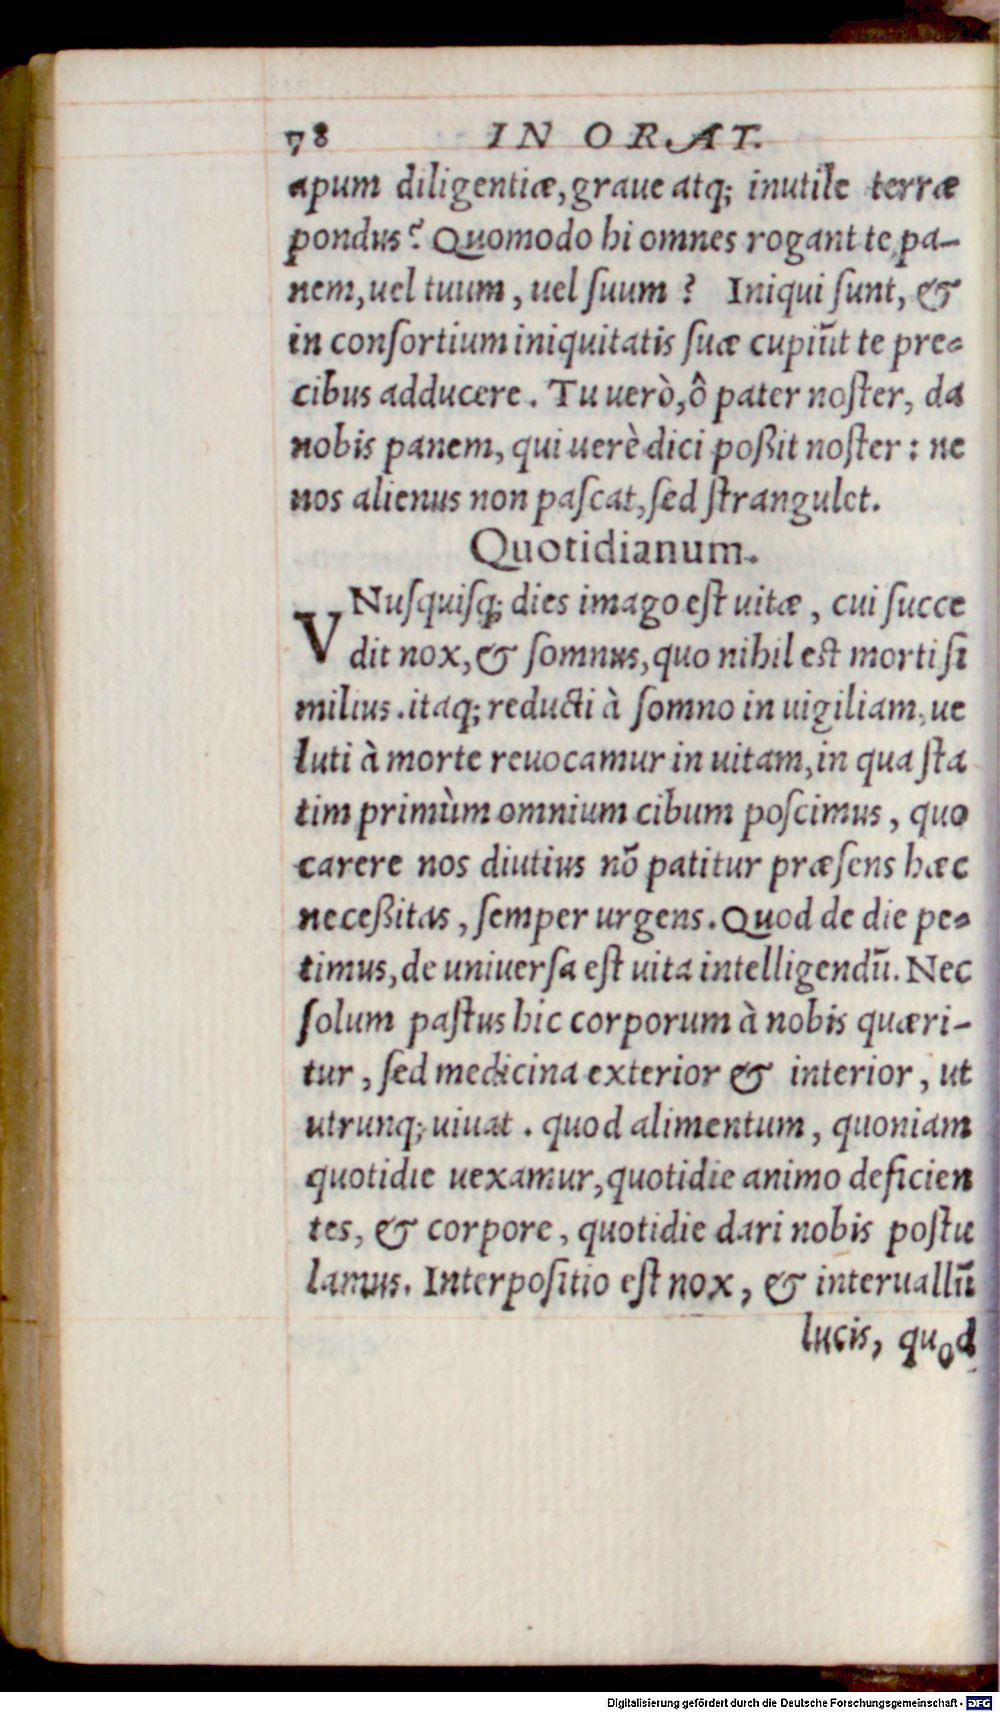 78 IN ORAT.
apum diligentiæ, graue atq; inutile terræ
pondus? Quomodo hi omnes rogant te pa-
nem, uel tuum, uel ſuum? Iniqui ſunt, &
in conſortium iniquitatis ſuæ cupiũt te pre-
cibus adducere. Tu uerò, ô pater noſter, da
nobis panem, qui uerè dici poßit noſter: ne
nos alienus non paſcat, ſed ſtrangulet.
Quotidianum.
VNuſquiſq; dies imago eſt uitæ, cui ſucce
dit nox, & ſomnus, quo nihil est morti ſi
milius. itaq; reducti à ſomno in uigiliam, ue
luti à morte reuocamur in uitam, in qua ſta
tim primùm omnium cibum poſcimus, quo
carere nos diutius nõ patitur præſens hæc
neceßitas, ſemper urgens. Quod de die pe-
timus, de uniuerſa eſt uita intelligendũ. Nec
ſolum paſtus hic corporum à nobis quæri-
tur, ſed medicina exterior & interior, ut
utrunq; uiuat. quod alimentum, quoniam
quotidie uexamur, quotidie animo deficien
tes, & corpore, quotidie dari nobis poſtu
lamus. Interpoſitio eſt nox, & interuallũ
lucis, quod
Digitalisierung gefördert durch die Deutsche Forschungsgemeinschaft - DFG